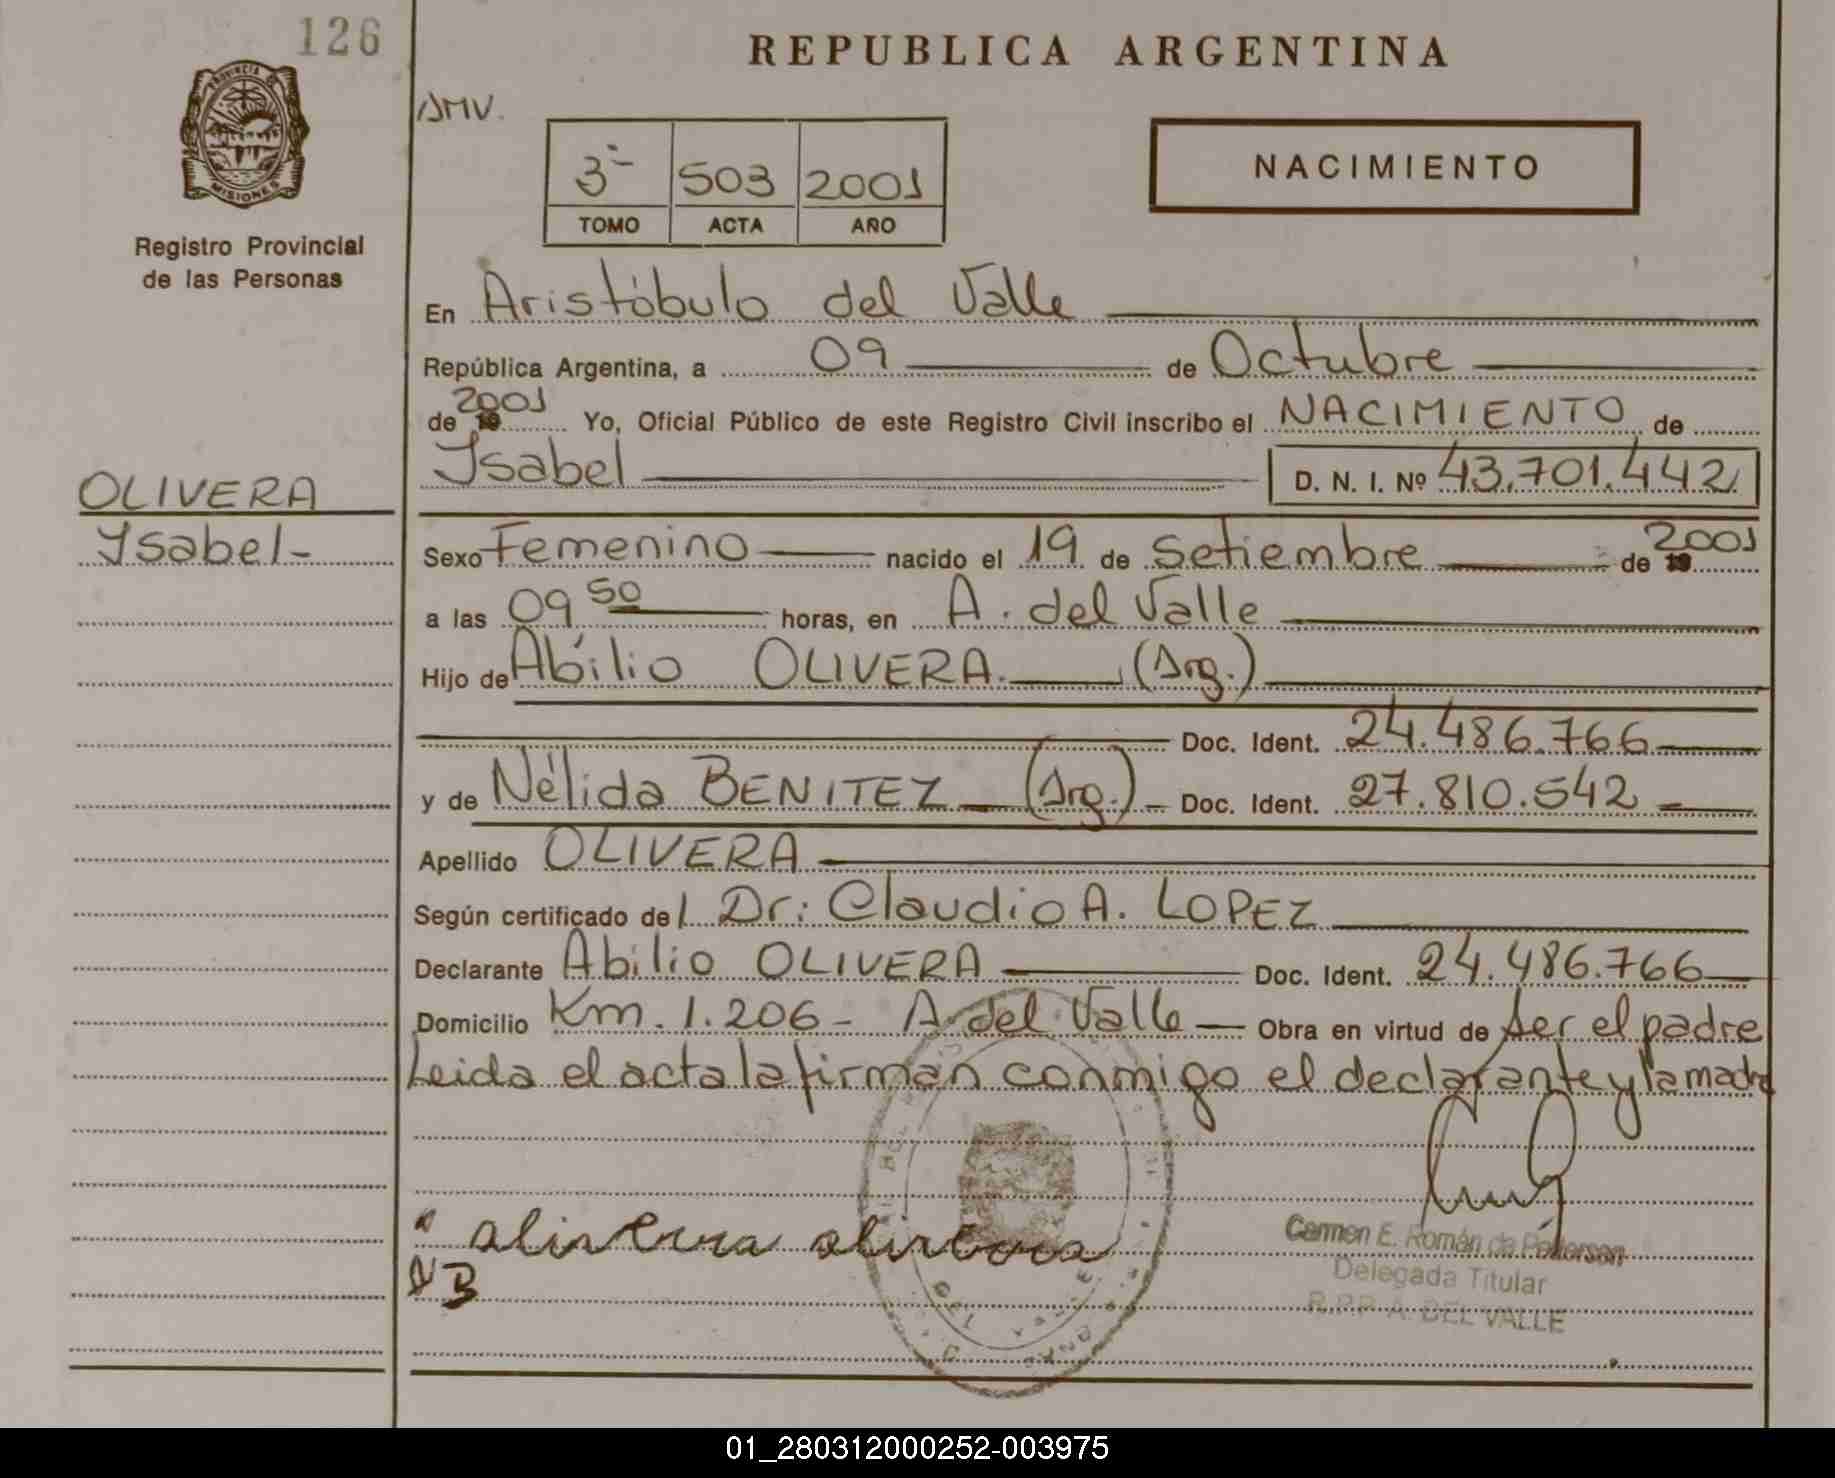 126
REPUBLICA ARGENTINA
AMV.
3- 503 2001
TOMO ACTA AÑO
NACIMIENTO
PROVINCIA DE
MISIONES
Registro Provincial
de las Personas
En Aristóbulo del Valle
República Argentina, a 09 de Octubre
de 2001 Yo, Oficial Público de este Registro Civil inscribo el NACIMIENTO de
Ysabel D. N. I. Nº 43.701.442
OLIVERA
Ysabel-
Sexo Femenino nacido el 19 de Setiembre de 2001
a las 09 50 horas, en A. del Valle
Hijo de Abílio OLIVERA. (Arg.)
Doc. Ident. 24.486.766
y de Nélida BENITEZ (Arg.) Doc. Ident. 27.810.542
Apellido OLIVERA
Según certificado del Dr: Claudio A. LOPEZ
Declarante Abilio OLIVERA Doc. Ident. 24.486.766
Domicilio Km. 1.206 - A. del Valle Obra en virtud de ser el padre
Leida el acta la firman conmigo el declarante y la madre
olivera olivera
NB
Carmen E. Román de Petterson
Delegada Titular
R.P.P. A. DEL VALLE
01_280312000252-003975